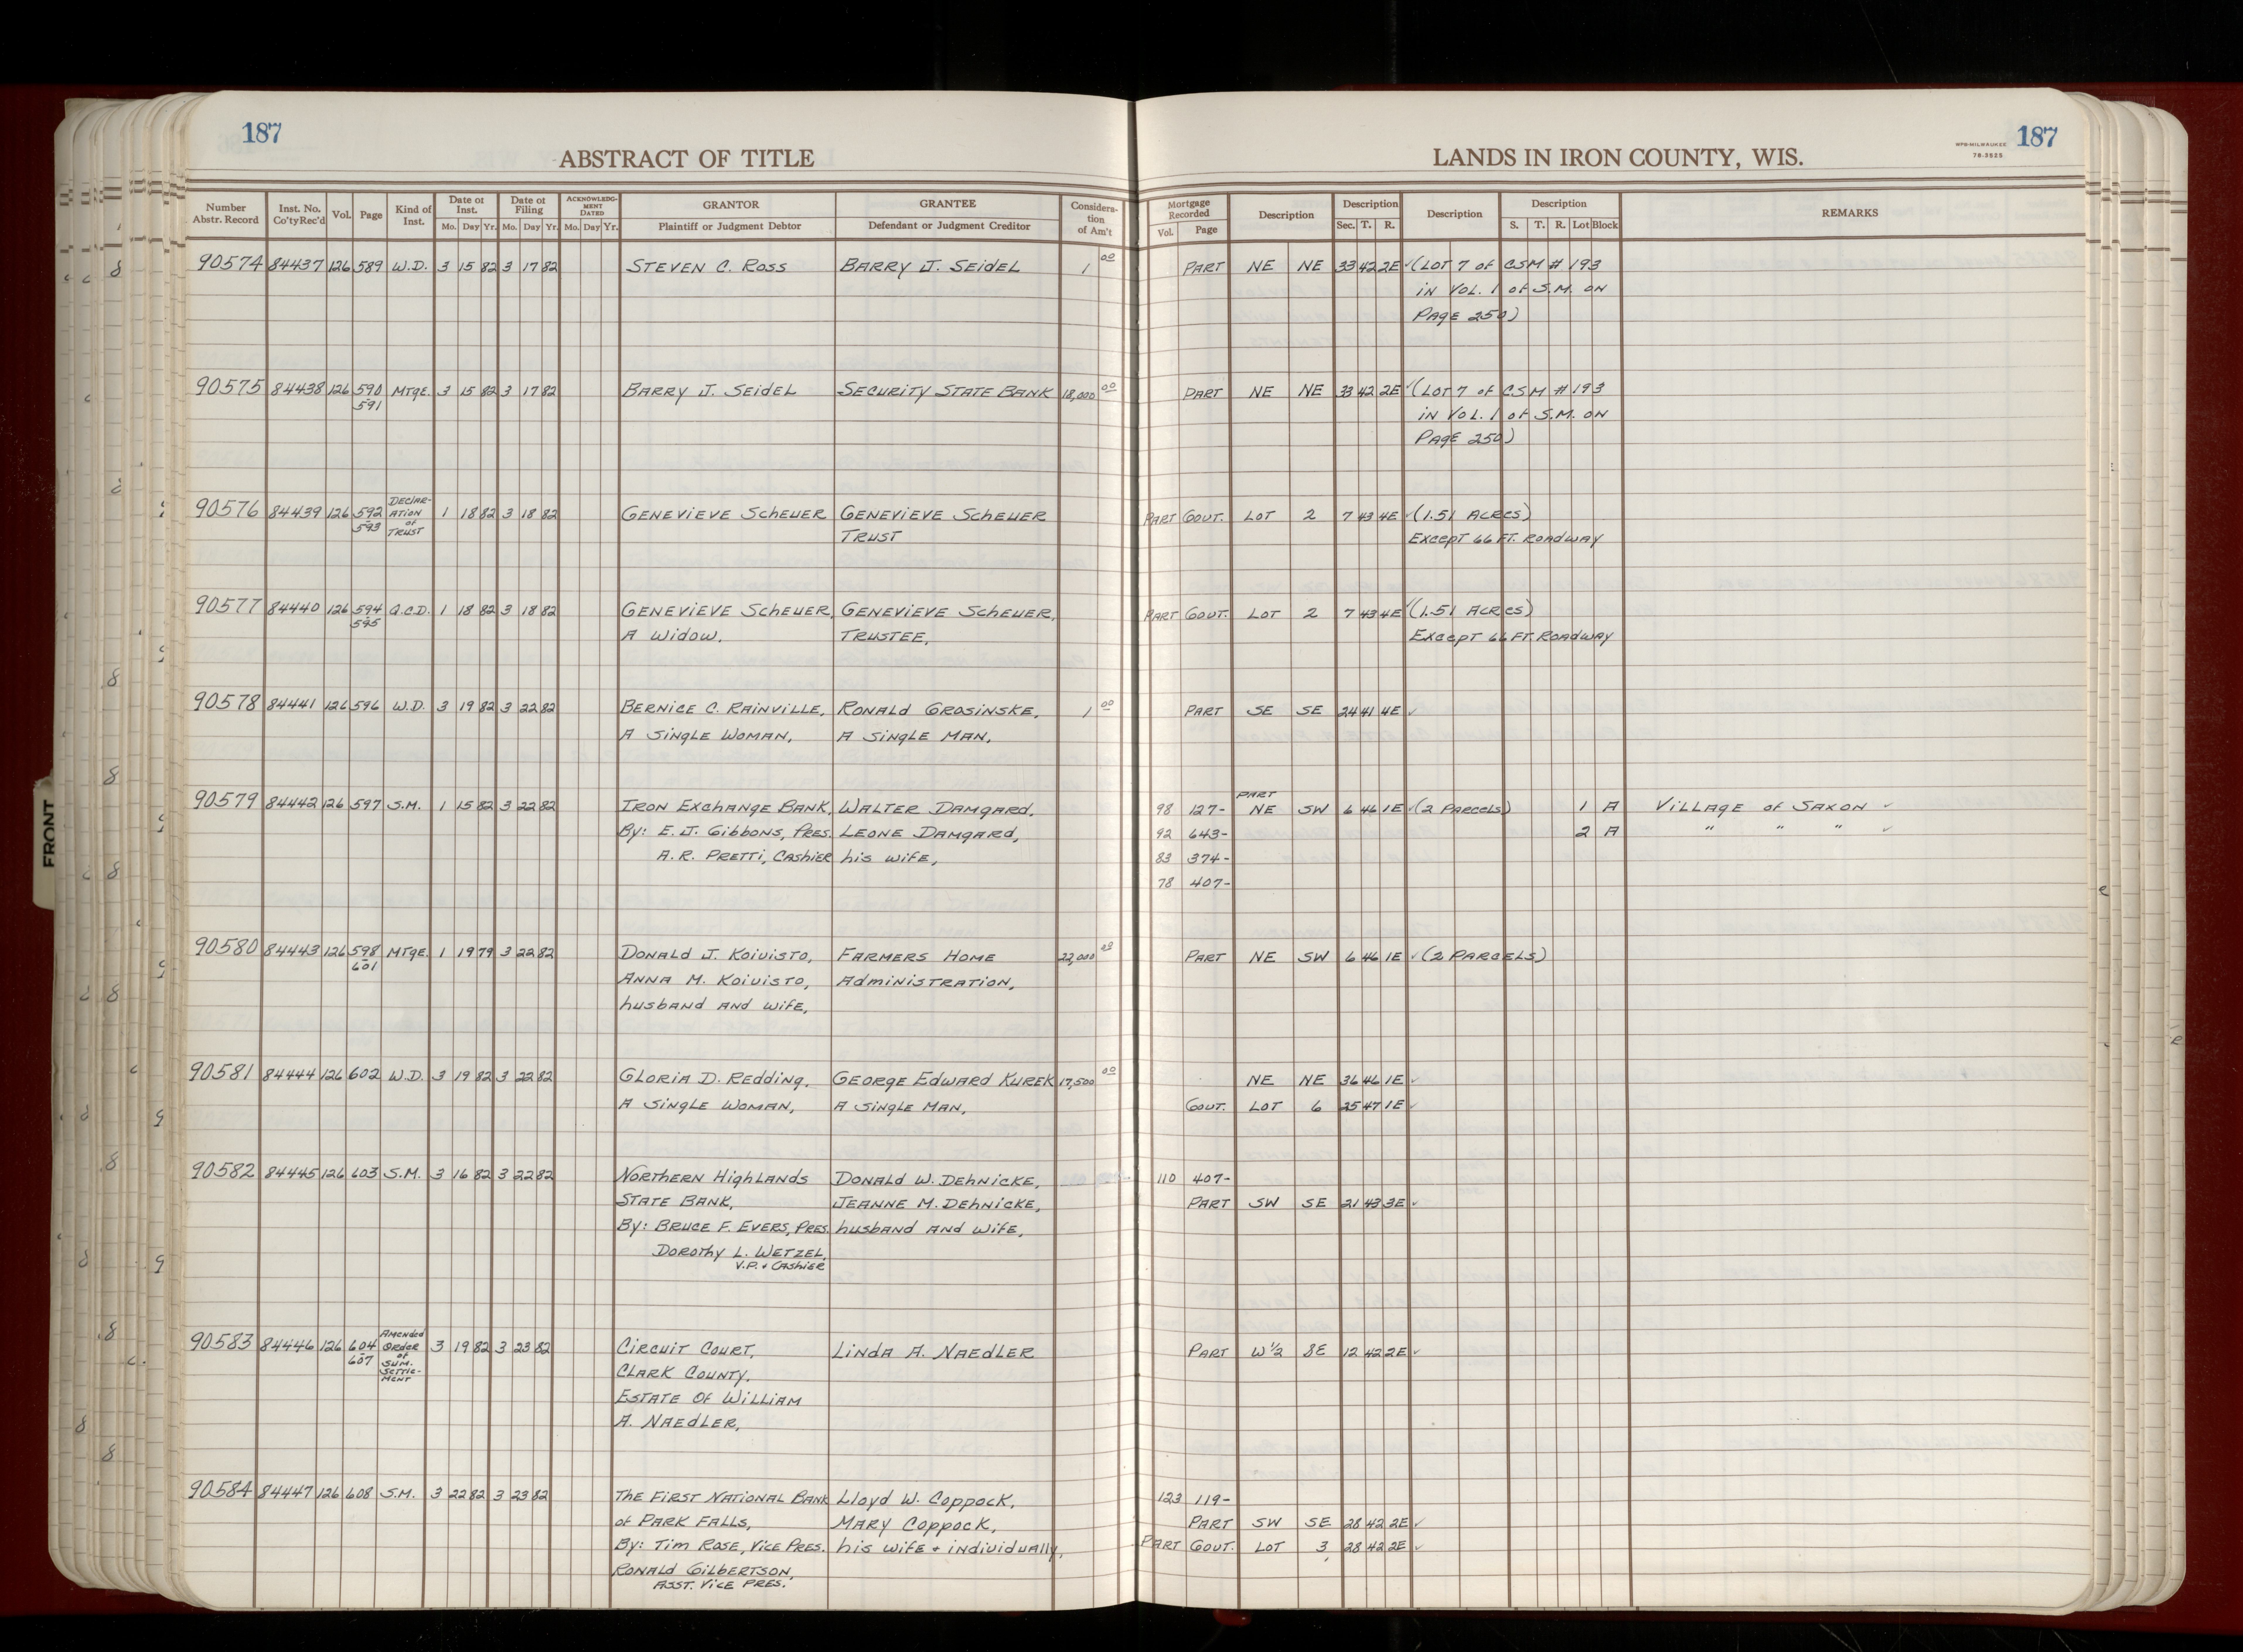 187
187
ABSTRACT OF TITLE
LANDS IN IRON COUNTY, WIS.
WPB-MILWAUKEE
78-3525
Number Abstr. Record | Inst. No. Co'ty Rec'd | Vol. | Page | Kind of Inst. | Date of Inst. Mo. Day Yr. | Date of Filing Mo. Day Yr. | ACKNOWLEDGMENT DATED Mo. Day Yr. | GRANTOR Plaintiff or Judgment Debtor | GRANTEE Defendant or Judgment Creditor | Consideration of Am't | Mortgage Recorded Vol. Page | Description | Description Sec. T. R. | Description | Description S. T. R. Lot Block | REMARKS
90574 84437 126 589 W.D. 3 15 82 3 17 82 STEVEN C. ROSS BARRY J. SEIDEL 1 00 PART NE NE 33 42 2E ✓ (LOT 7 of CSM # 193
in VOL. 1 of S.M. on
PAGE 250)
90575 84438 126 590 MTGE. 3 15 82 3 17 82 BARRY J. SEIDEL SECURITY STATE BANK 18,000 00 PART NE NE 33 42 2E ✓ (LOT 7 of CSM # 193
-591 in VOL. 1 of S.M. on
PAGE 250)
90576 84439 126 592 DECLARATION of TRUST 1 18 82 3 18 82 GENEVIEVE SCHEUER GENEVIEVE SCHEUER PART GOVT. LOT 2 7 43 4E ✓ (1.51 ACRES)
-593 TRUST EXCEPT 66 FT. ROADWAY
90577 84440 126 594 Q.C.D. 1 18 82 3 18 82 GENEVIEVE SCHEUER, GENEVIEVE SCHEUER, PART GOVT. LOT 2 7 43 4E ✓ (1.51 ACRES)
-595 A WIDOW, TRUSTEE, EXCEPT 66 FT. ROADWAY
90578 84441 126 596 W.D. 3 19 82 3 22 82 BERNICE C. RAINVILLE, RONALD GROSINSKE, 1 00 PART SE SE 24 41 4E ✓
A SINGLE WOMAN, A SINGLE MAN,
PART
90579 84442 126 597 S.M. 1 15 82 3 22 82 IRON EXCHANGE BANK, WALTER DAMGARD, 98 127- NE SW 6 46 1E ✓ (2 PARCELS) 1 A VILLAGE of SAXON ✓
By: E. J. GIBBONS, PRES. LEONE DAMGARD, 92 643- 2 A " " " ✓
A. R. PRETTI, CASHIER his wife, 83 374-
78 407-
90580 84443 126 598 MTGE. 1 19 79 3 22 82 DONALD J. KOIVISTO, FARMERS HOME 22,000 00 PART NE SW 6 46 1E ✓ (2 PARCELS)
-601 ANNA M. KOIVISTO, ADMINISTRATION,
husband AND wife,
90581 84444 126 602 W.D. 3 19 82 3 22 82 GLORIA D. REDDING, GEORGE EDWARD KUREK 17,500 00 NE NE 36 46 1E ✓
A SINGLE WOMAN, A SINGLE MAN, GOVT. LOT 6 25 47 1E ✓
90582 84445 126 603 S.M. 3 16 82 3 22 82 NORTHERN HIGHLANDS DONALD W. DEHNICKE, 110 407-
STATE BANK, JEANNE M. DEHNICKE, PART SW SE 21 43 3E ✓
By: BRUCE F. EVERS, PRES. husband AND wife,
DOROTHY L. WETZEL,
V.P. + CASHIER
90583 84446 126 604 AMENDED ORDER of SUM. SETTLEMENT 3 19 82 3 23 82 CIRCUIT COURT, LINDA A. NAEDLER PART W 1/2 SE 12 42 2E ✓
-607 CLARK COUNTY,
ESTATE OF WILLIAM
A. NAEDLER,
90584 84447 126 608 S.M. 3 22 82 3 23 82 THE FIRST NATIONAL BANK LLOYD W. COPPOCK, 123 119-
of PARK FALLS, MARY COPPOCK, PART SW SE 28 42 2E ✓
By: TIM ROSE, VICE PRES. his wife + individually, PART GOVT. LOT 3 28 42 2E ✓
RONALD GILBERTSON,
ASST. VICE PRES.
FRONT